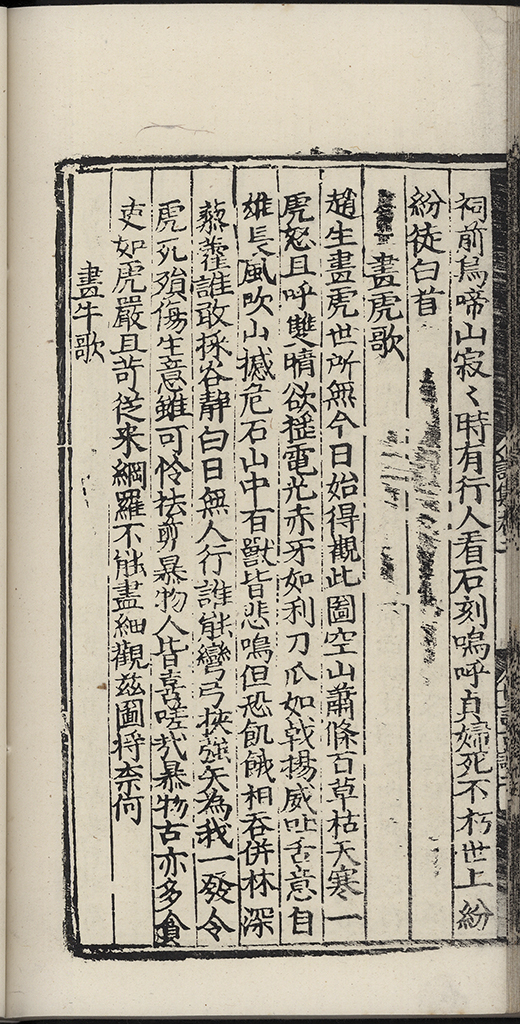 祠前烏啼山寂〻時有行人看石刻嗚呼貞婦死不朽世上紛
紛徒白首
畫虎歌
趙生畫虎世所無今日始得觀此圖空山蕭條百草枯天寒一
虎怒且呼雙睛欲掣電光赤牙如利刀爪如戟揚威吐舌意自
雄長風吹山撼危石山中百獸皆悲鳴但恐飢餓相吞併林深
藜藿誰敢採谷靜白日無人行誰能彎弓挾強矢為我一發令
虎死殆傷生意雖可怜袪剪暴物人皆喜嗟哉暴物古亦多貪
吏如虎嚴且苛從来網羅不能盡細觀兹圖将奈何
畫牛歌